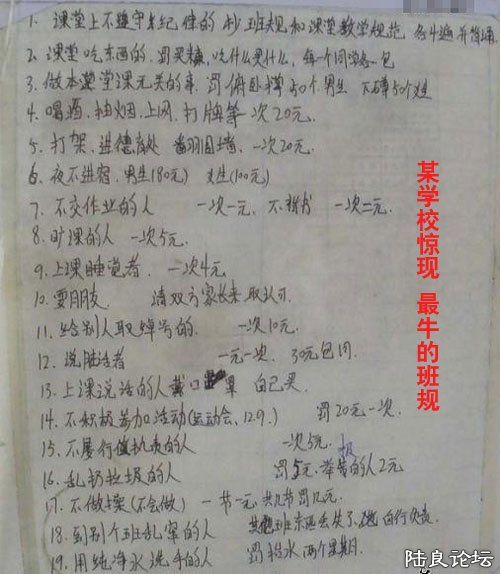 1. 课堂上不遵守纪律的 抄班规和课堂教学规范 各4遍并背诵
2. 课堂吃东西的.罚买糖,吃什么买什么,每个同学各一包
3. 做本堂课无关的事.罚俯卧撑50个.男生 下蹲50个女生
4. 喝酒.抽烟.上网.打牌等一次20元.
5. 打架.进德育处 翻围墙.一次20元.
6. 夜不进宿.男生(80元) 女生(100元)
7. 不交作业的人 一次一元. 不背书 一次二元.
8. 旷课的人 一次5元.
9. 上课睡觉者. 一次4元
10. 耍朋友. 请双方家长来取认可.
11. 给别人取绰号的. 一次10元.
12. 说脏话者 一元一次. 30元包月.
13. 上课说话的人戴口罩 自己买.
14. 不积极参加活动(运动会、12.9.) 罚20元一次.
15. 不履行值执责的人 一次5元.
16. 乱扔垃圾的人 罚5元.举报的人2元
17. 不做操(不会做) 一节一元.共几节罚几元.
18. 到别个班乱窜的人 其班东西丢失了.自行负责.
19. 用纯净水洗手的人 罚抬水两个星期.
某学校惊现 最牛的班规
陆良论坛